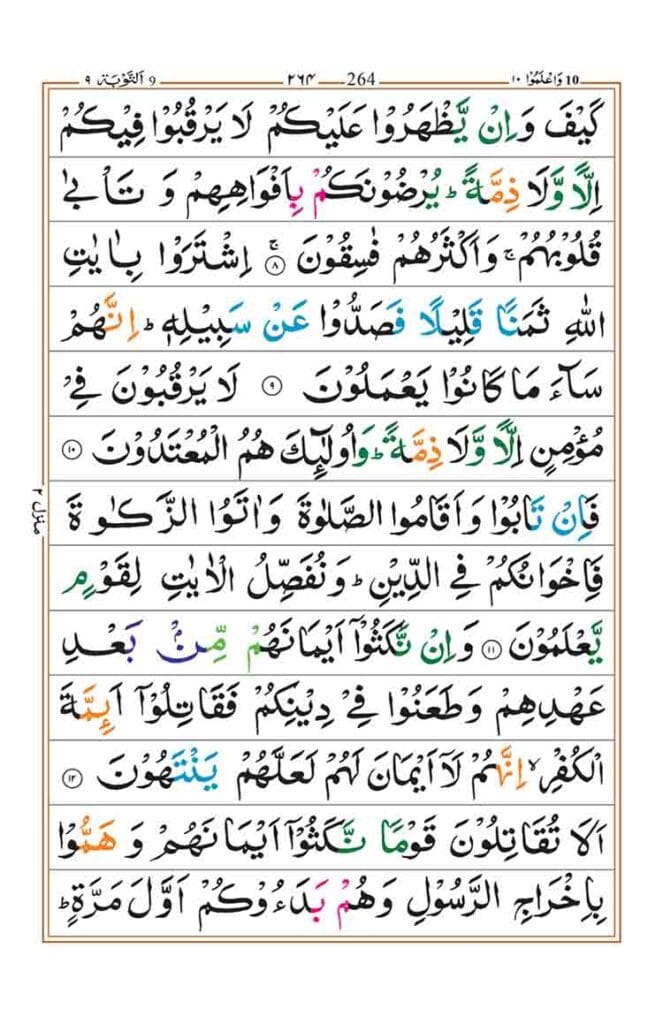 10 وَاعْلَمُوْۤا ۱۰ 264 ۲۶۴ 9 اَلتَّوْبَة ۹
كَيْفَ وَاِنْ يَّظْهَرُوْا عَلَيْكُمْ لَا يَرْقُبُوْا فِيْكُمْ
اِلًّا وَّلَا ذِمَّةً ؕ يُرْضُوْنَكُمْ بِاَفْوَاهِهِمْ وَ تَاْبٰى
قُلُوْبُهُمْ ۚ وَاَكْثَرُهُمْ فٰسِقُوْنَ ۚ ۸ اِشْتَرَوْا بِاٰيٰتِ
اللّٰهِ ثَمَنًا قَلِيْلًا فَصَدُّوْا عَنْ سَبِيْلِهٖ ؕ اِنَّهُمْ
سَآءَ مَا كَانُوْا يَعْمَلُوْنَ ۹ لَا يَرْقُبُوْنَ فِيْ
مُؤْمِنٍ اِلًّا وَّلَا ذِمَّةً ؕ وَاُولٰٓئِكَ هُمُ الْمُعْتَدُوْنَ ۱۰
فَاِنْ تَابُوْا وَاَقَامُوا الصَّلٰوةَ وَاٰتَوُا الزَّكٰوةَ
فَاِخْوَانُكُمْ فِي الدِّيْنِ ؕ وَنُفَصِّلُ الْاٰيٰتِ لِقَوْمٍ
يَّعْلَمُوْنَ ۱۱ وَاِنْ نَّكَثُوْۤا اَيْمَانَهُمْ مِّنْۢ بَعْدِ
عَهْدِهِمْ وَطَعَنُوْا فِيْ دِيْنِكُمْ فَقَاتِلُوْۤا اَئِمَّةَ
الْكُفْرِ ۙ اِنَّهُمْ لَاۤ اَيْمَانَ لَهُمْ لَعَلَّهُمْ يَنْتَهُوْنَ ۱۲
اَلَا تُقَاتِلُوْنَ قَوْمًا نَّكَثُوْۤا اَيْمَانَهُمْ وَ هَمُّوْا
بِاِخْرَاجِ الرَّسُوْلِ وَهُمْ بَدَءُوْكُمْ اَوَّلَ مَرَّةٍ ؕ
منزل ۲